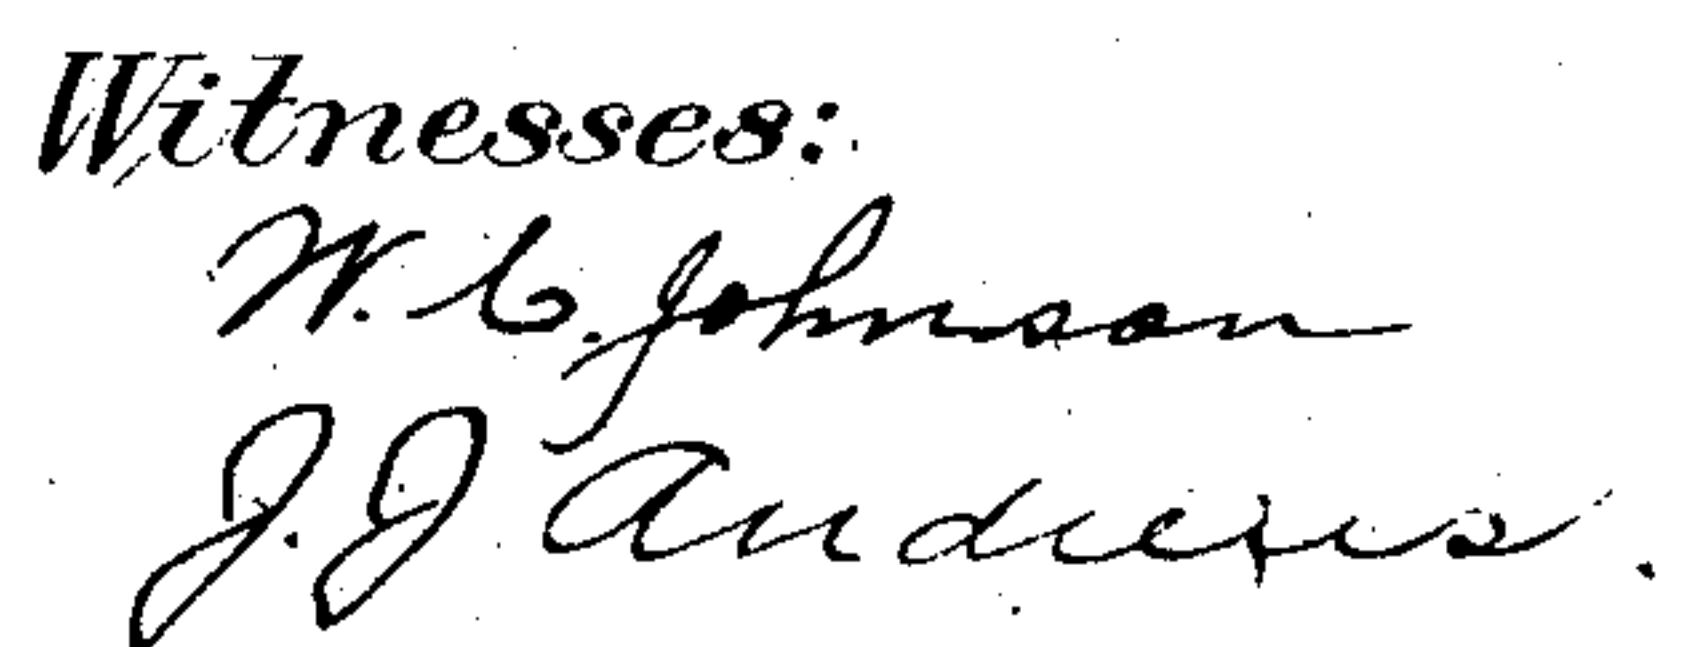 Witnesses:
W. C. Johnson
J. J. Andrews.